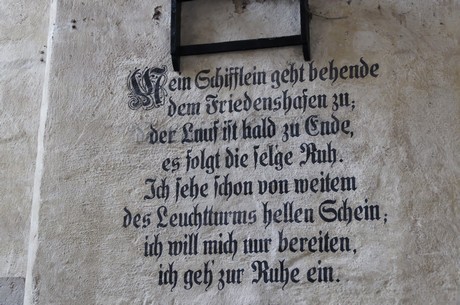 Mein Schifflein geht behende
dem Friedenshafen zu;
der Lauf ist bald zu Ende,
es folgt die sel'ge Ruh.
Ich sehe schon von weitem
des Leuchtturms hellen Schein;
ich will mich nur bereiten,
ich geh' zur Ruhe ein.